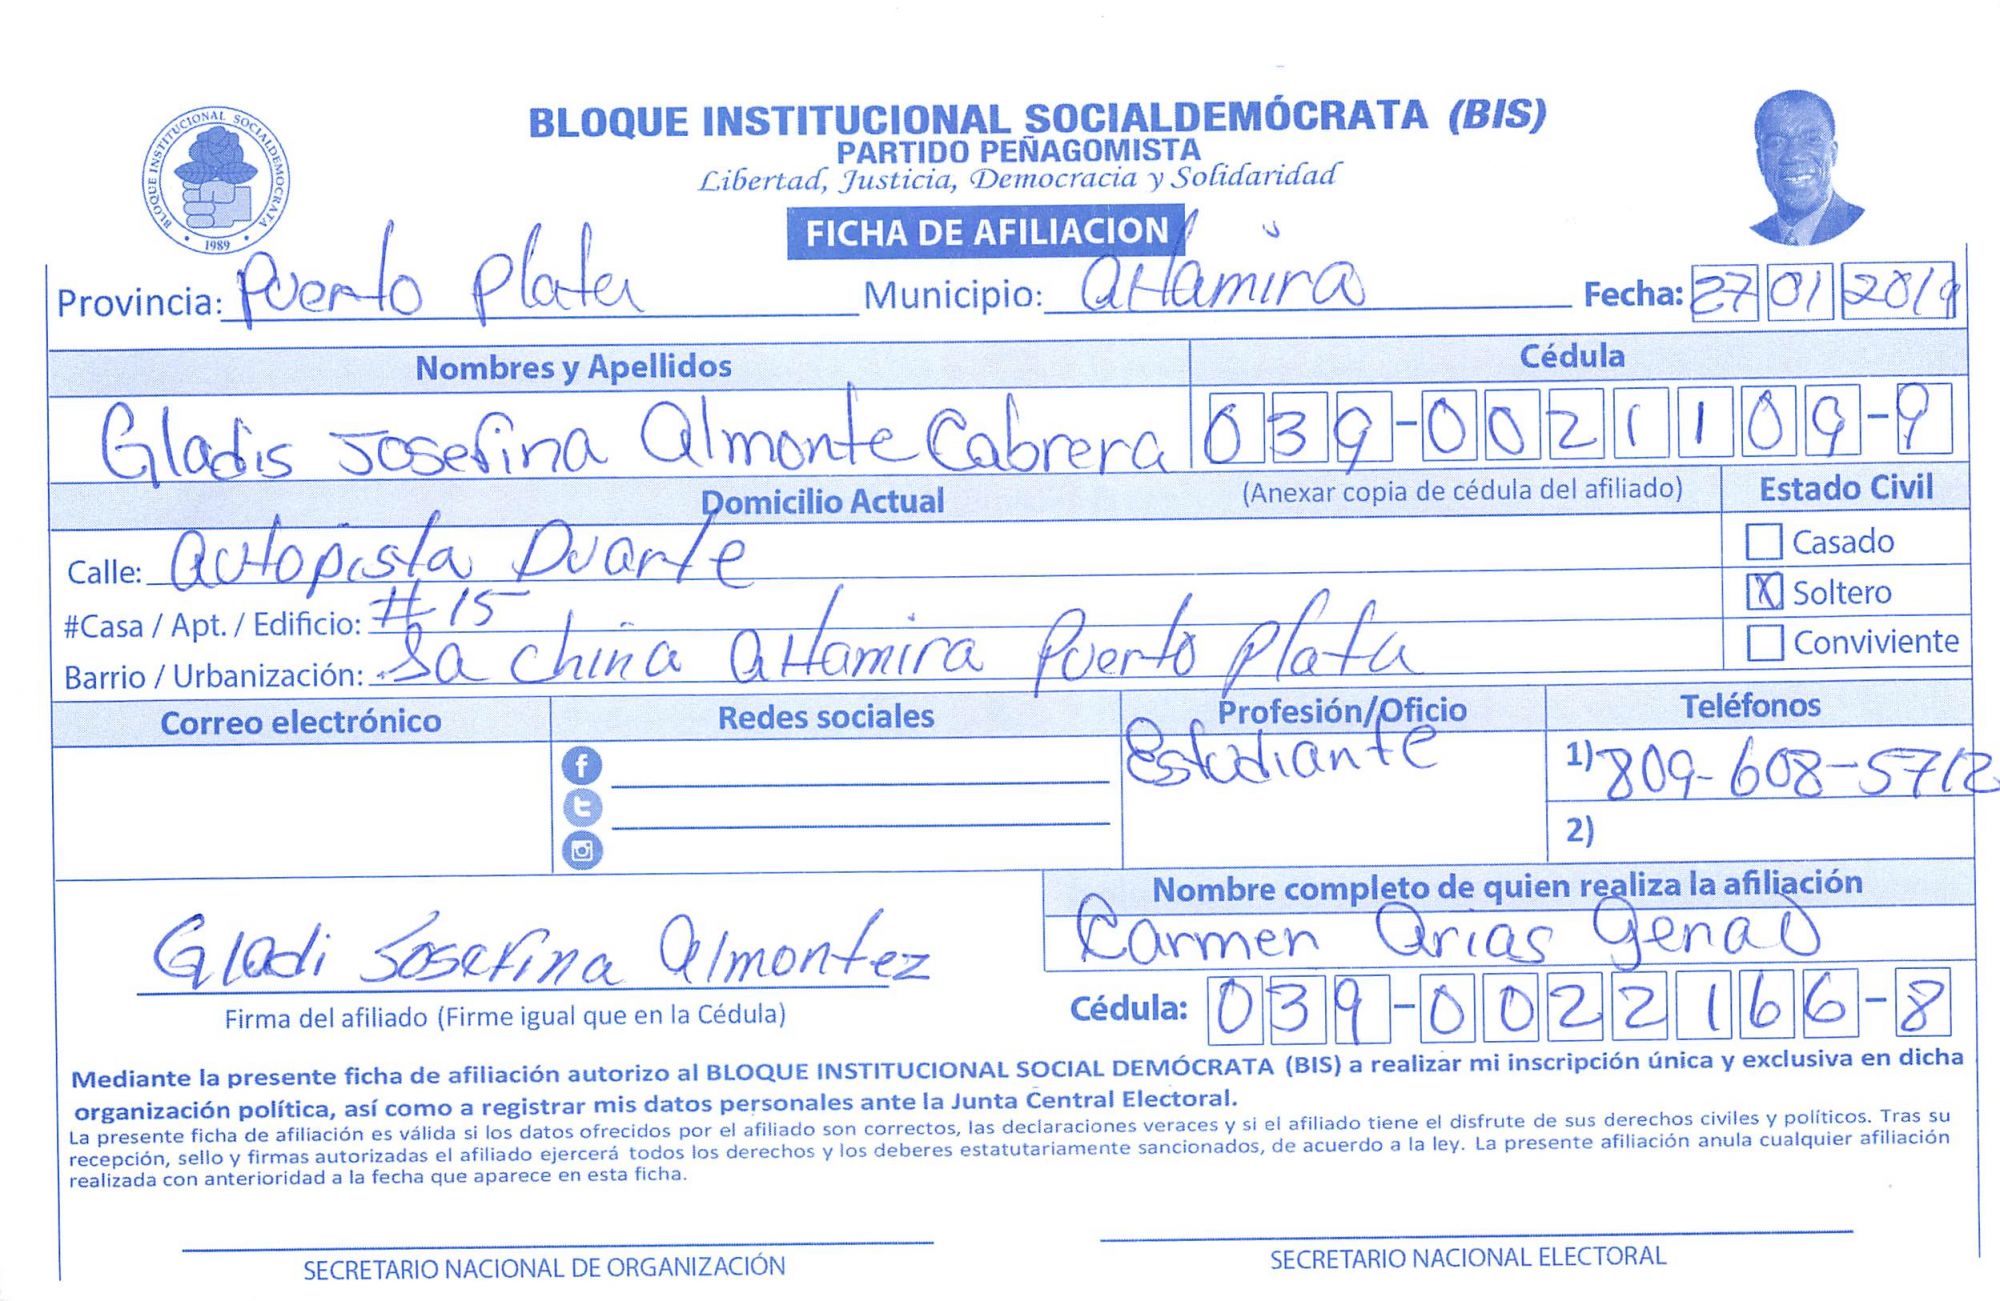 BLOQUE INSTITUCIONAL SOCIALDEMOCRATA
1989
BLOQUE INSTITUCIONAL SOCIALDEMÓCRATA (BIS)
PARTIDO PEÑAGOMISTA
Libertad, Justicia, Democracia y Solidaridad
FICHA DE AFILIACION
Provincia: Puerto Plata Municipio: Altamira Fecha: 27 01 2019
Nombres y Apellidos Cédula
Gladis Josefina Almonte Cabrera 039-0021109-9
Domicilio Actual (Anexar copia de cédula del afiliado) Estado Civil
Calle: Autopista Duarte Casado
#Casa / Apt. / Edificio: #15 X Soltero
Barrio / Urbanización: La china Altamira Puerto Plata Conviviente
Correo electrónico Redes sociales Profesión/Oficio Teléfonos
Estudiante 1) 809-608-5712
2)
Nombre completo de quien realiza la afiliación
Gladi Josefina Almontez Carmen Arias Genao
Firma del afiliado (Firme igual que en la Cédula) Cédula: 039-0022166-8
Mediante la presente ficha de afiliación autorizo al BLOQUE INSTITUCIONAL SOCIAL DEMÓCRATA (BIS) a realizar mi inscripción única y exclusiva en dicha
organización política, así como a registrar mis datos personales ante la Junta Central Electoral.
La presente ficha de afiliación es válida si los datos ofrecidos por el afiliado son correctos, las declaraciones veraces y si el afiliado tiene el disfrute de sus derechos civiles y políticos. Tras su
recepción, sello y firmas autorizadas el afiliado ejercerá todos los derechos y los deberes estatutariamente sancionados, de acuerdo a la ley. La presente afiliación anula cualquier afiliación
realizada con anterioridad a la fecha que aparece en esta ficha.
SECRETARIO NACIONAL DE ORGANIZACIÓN SECRETARIO NACIONAL ELECTORAL